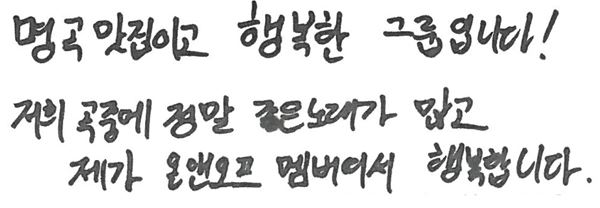 명곡 맛집이고 행복한 그룹입니다!
저희 곡중에 정말 좋은노래가 많고
제가 온앤오프 멤버여서 행복합니다.